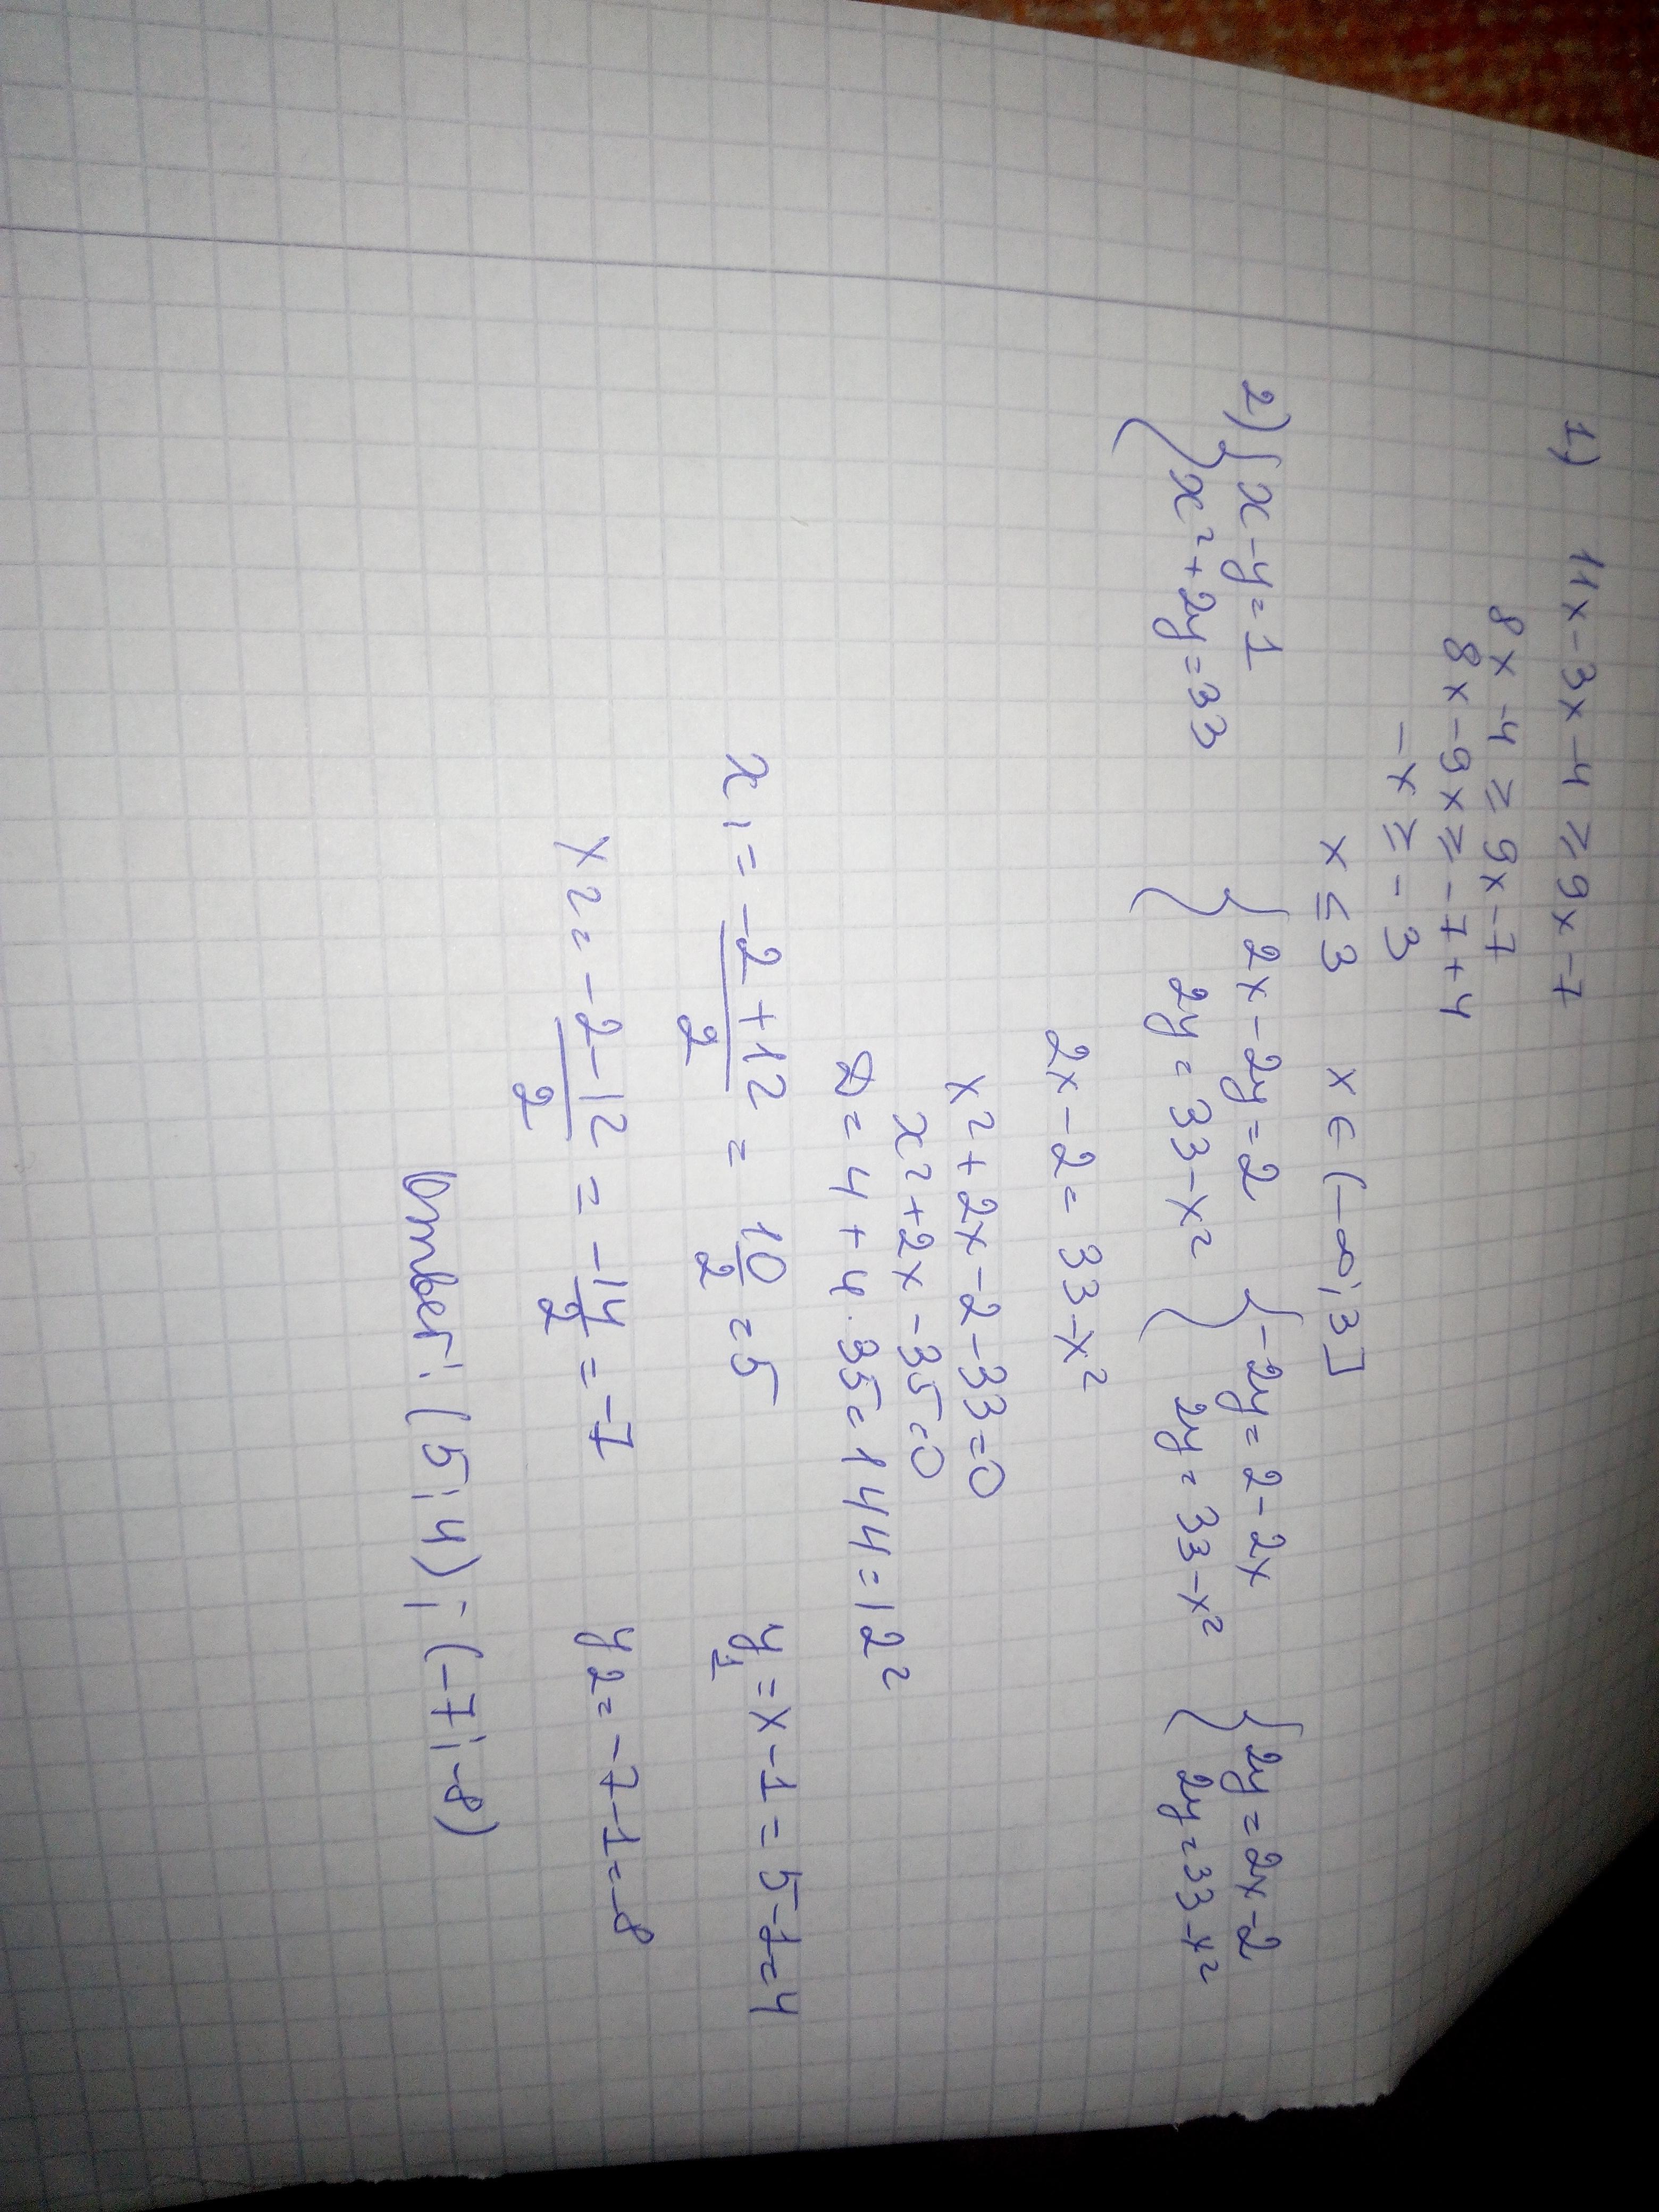 1) 11x - 3x - 4 ≥ 9x - 7
8x - 4 ≥ 9x - 7
8x - 9x ≥ -7 + 4
-x ≥ -3
x ≤ 3 x ∈ (-∞; 3]
2) { x - y = 1 { 2x - 2y = 2 { -2y = 2 - 2x { 2y = 2x - 2
x² + 2y = 33 2y = 33 - x² 2y = 33 - x² 2y = 33 - x²
2x - 2 = 33 - x²
x² + 2x - 2 - 33 = 0
x² + 2x - 35 = 0
D = 4 + 4 · 35 = 144 = 12²
x₁ = (-2 + 12)/2 = 10/2 = 5 y₁ = x - 1 = 5 - 1 = 4
x₂ = (-2 - 12)/2 = -14/2 = -7 y₂ = -7 - 1 = -8
Ответ: (5; 4); (-7; -8)